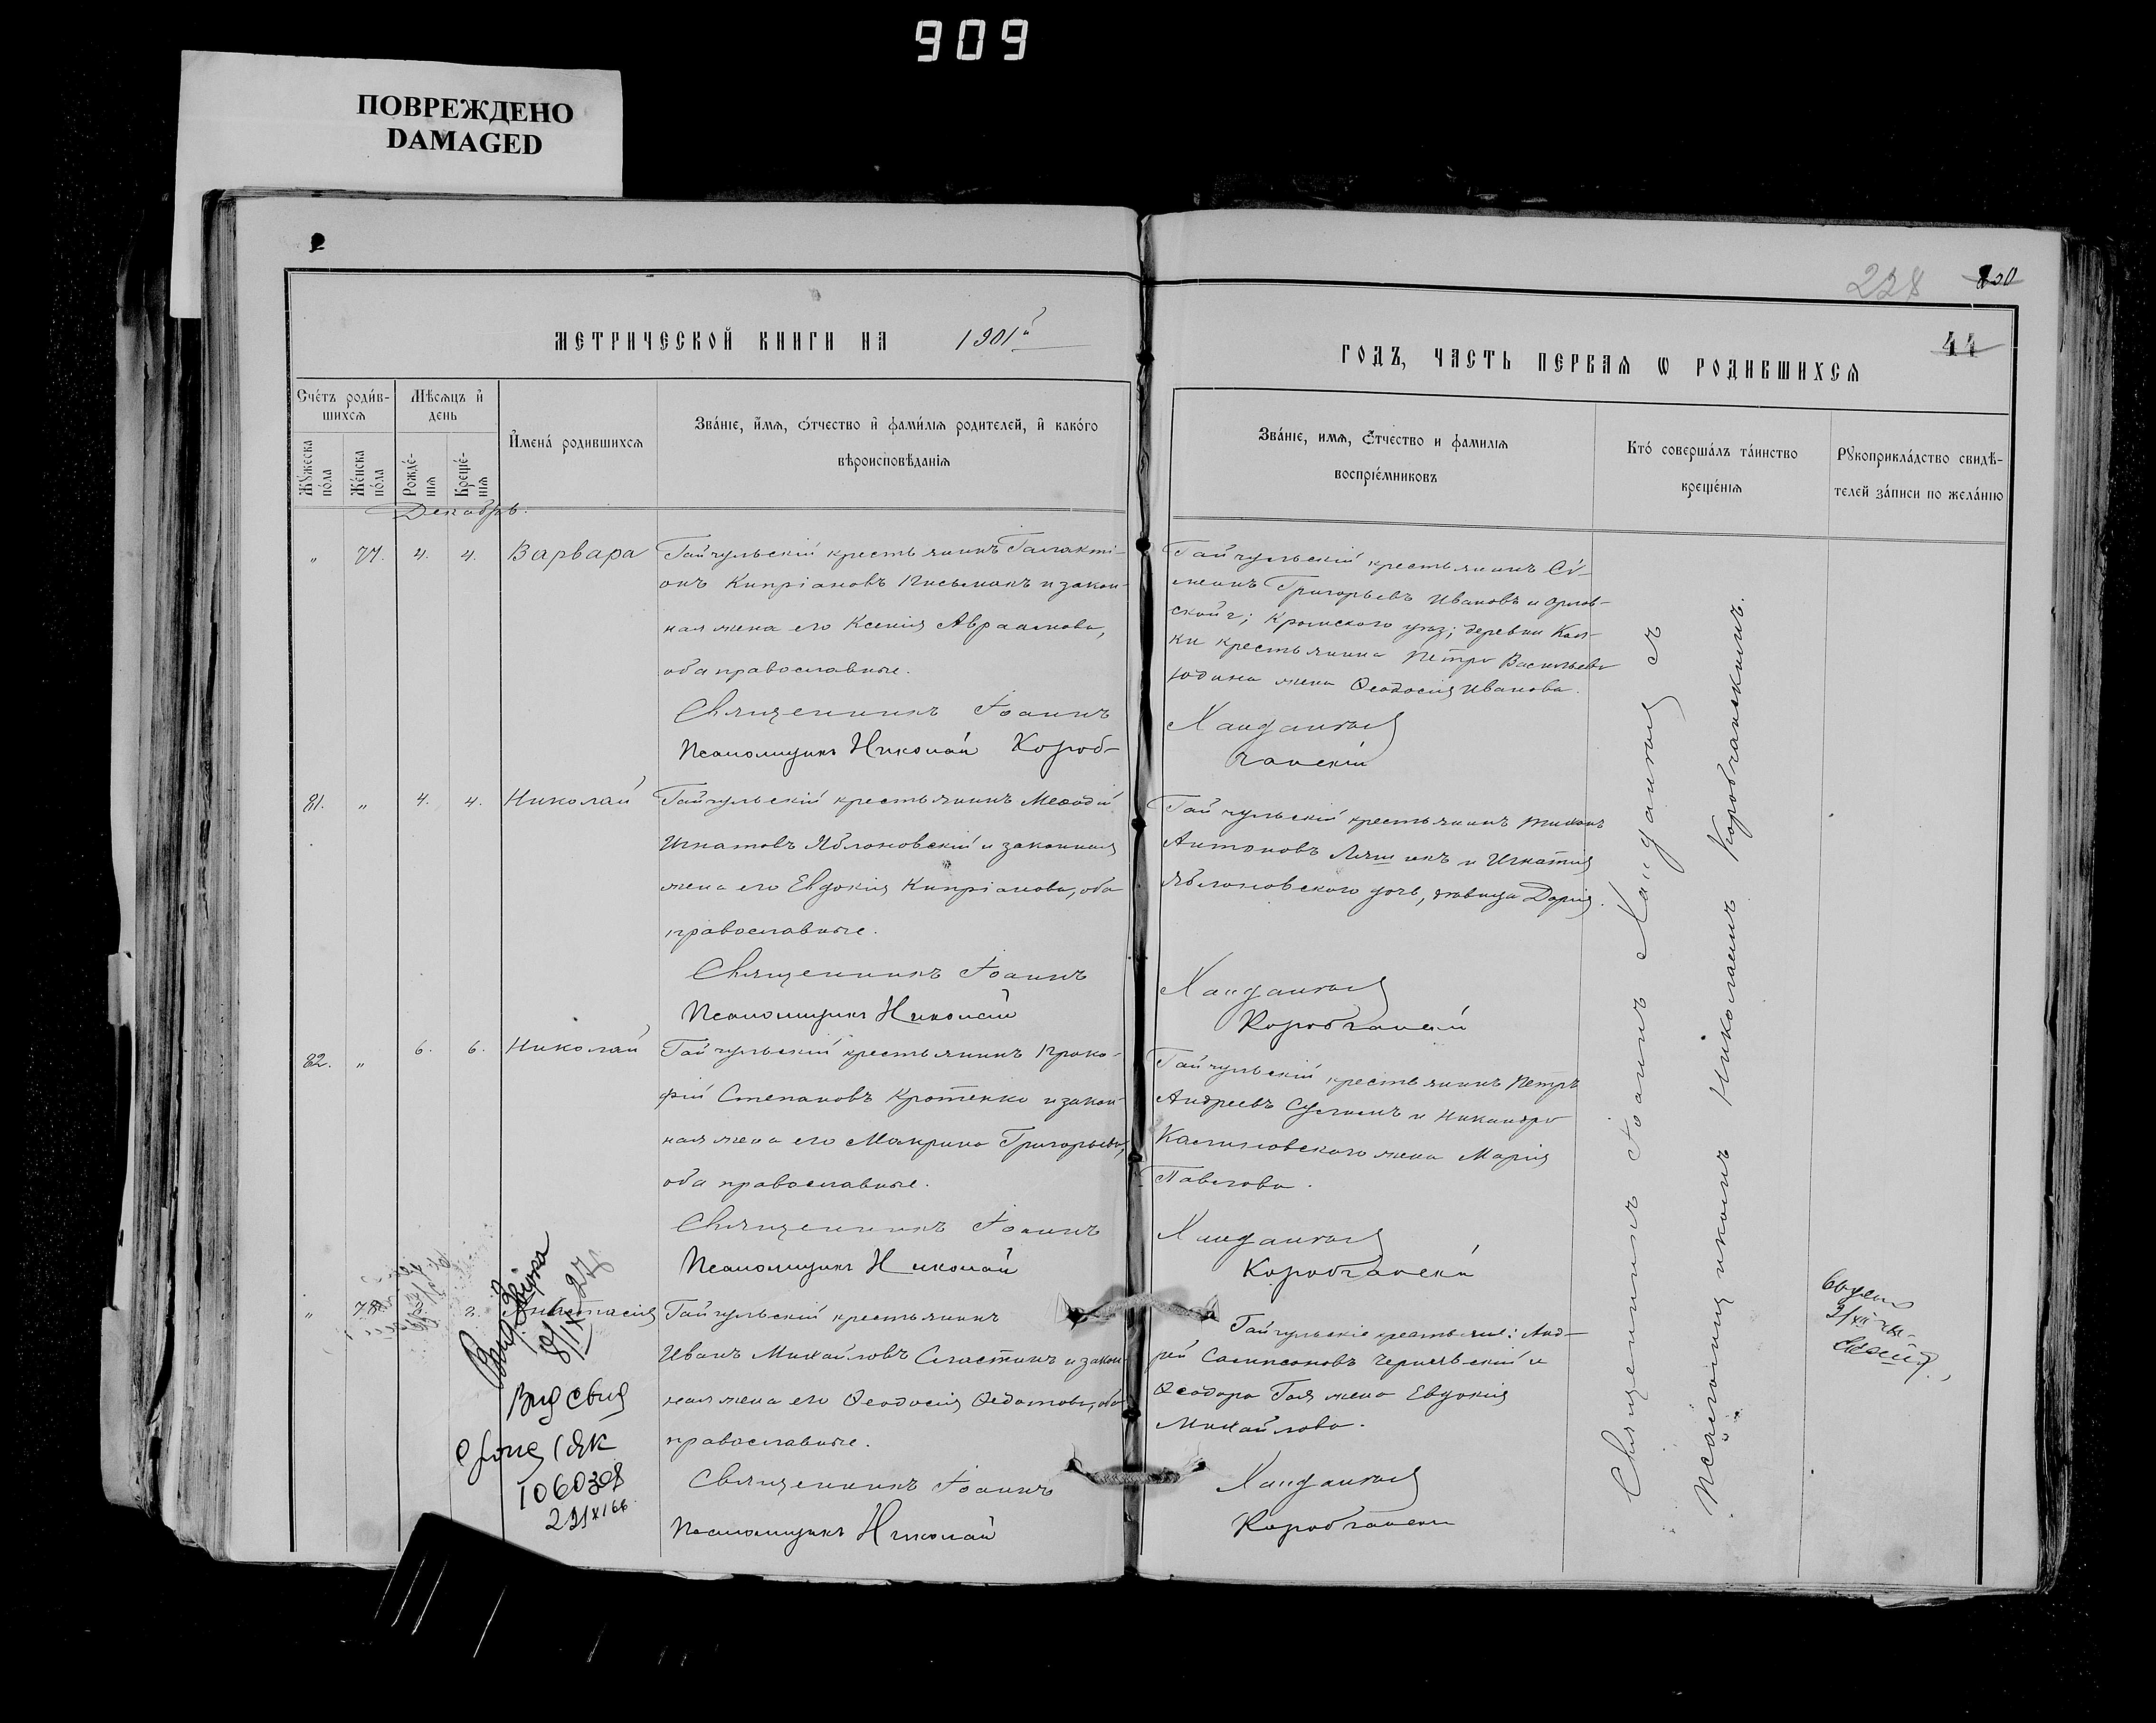 909
ПОВРЕЖДЕНО
DAMAGED
228
44
МЕТРИЧЕСКОЙ КНИГИ НА 1901й
ГОДЪ, ЧАСТЬ ПЕРВАЯ Ѡ РОДИВШИХСЯ
Счетъ родив-
шихся
Мужеска
пола
Женска
пола
Мѣсяцъ и
день
Рожде-
нія
Креще-
нія
Имена родившихся
Званіе, имя, отчество и фамилія родителей, и какого
вѣроисповѣданія
Званіе, имя, отчество и фамилія
воспріемниковъ
Кто совершалъ таинство
крещенія
Рукоприкладство свидѣ-
телей записи по желанію
Декабрь.
" 77. 4. 4. Варвара
Гайчульскій крестьянинъ Галакті-
онъ Кипріановъ Письманъ и закон-
ная жена его Ксенія Авраамова,
оба православные.
Священникъ Іоаннъ
Псаломщикъ Николай Короб-
Гайчульскій крестьянинъ Сѵ-
меонъ Григорьевъ Ивановъ и Орлов-
ской г; Кромского уѣз; деревни
ки крестьянина Петра Васильева
Юдина жена Ѳеодосія Иванова.
Хандажевъ
чанскій
81. " 4. 4. Николай
Гайчульскій крестьянинъ Меѳодій
Игнатовъ Яблоновскій и законная
жена его Евдокія Кипріанова, оба
православные.
Священникъ Іоаннъ
Псаломщикъ Николай
Гайчульскій крестьянинъ Тихонъ
Антоновъ и Игнатія
Яблоновского дочь, дѣвица Дарія.
Коробчанскій
82. " 6. 6. Николай
Гайчульскій крестьянинъ Проко-
фій Степановъ Кротенко и закон-
ная жена его Макрина Григорьева,
оба православные.
Священникъ Іоаннъ
Псаломщикъ Николай
Гайчульскій крестьянинъ Петръ
Андреевъ и Никандра
жена Марія
Павлова.
Коробчанскій
" 78. 2. Анастасія
Гайчульскій крестьянинъ
Иванъ Михайловъ Сластинъ и закон-
ная жена его Ѳеодосія Ѳедотова, оба
православные.
Священникъ Іоаннъ
Псаломщикъ Николай
Гайчульскіе крестьяне: Анд-
рей Сампсоновъ Чернявскій и
Ѳеодора Гая жена Евдокія
Михайлова.
Коробчанскій
Священникъ Іоаннъ
Псаломщикомъ Николаемъ Коробчанскимъ.